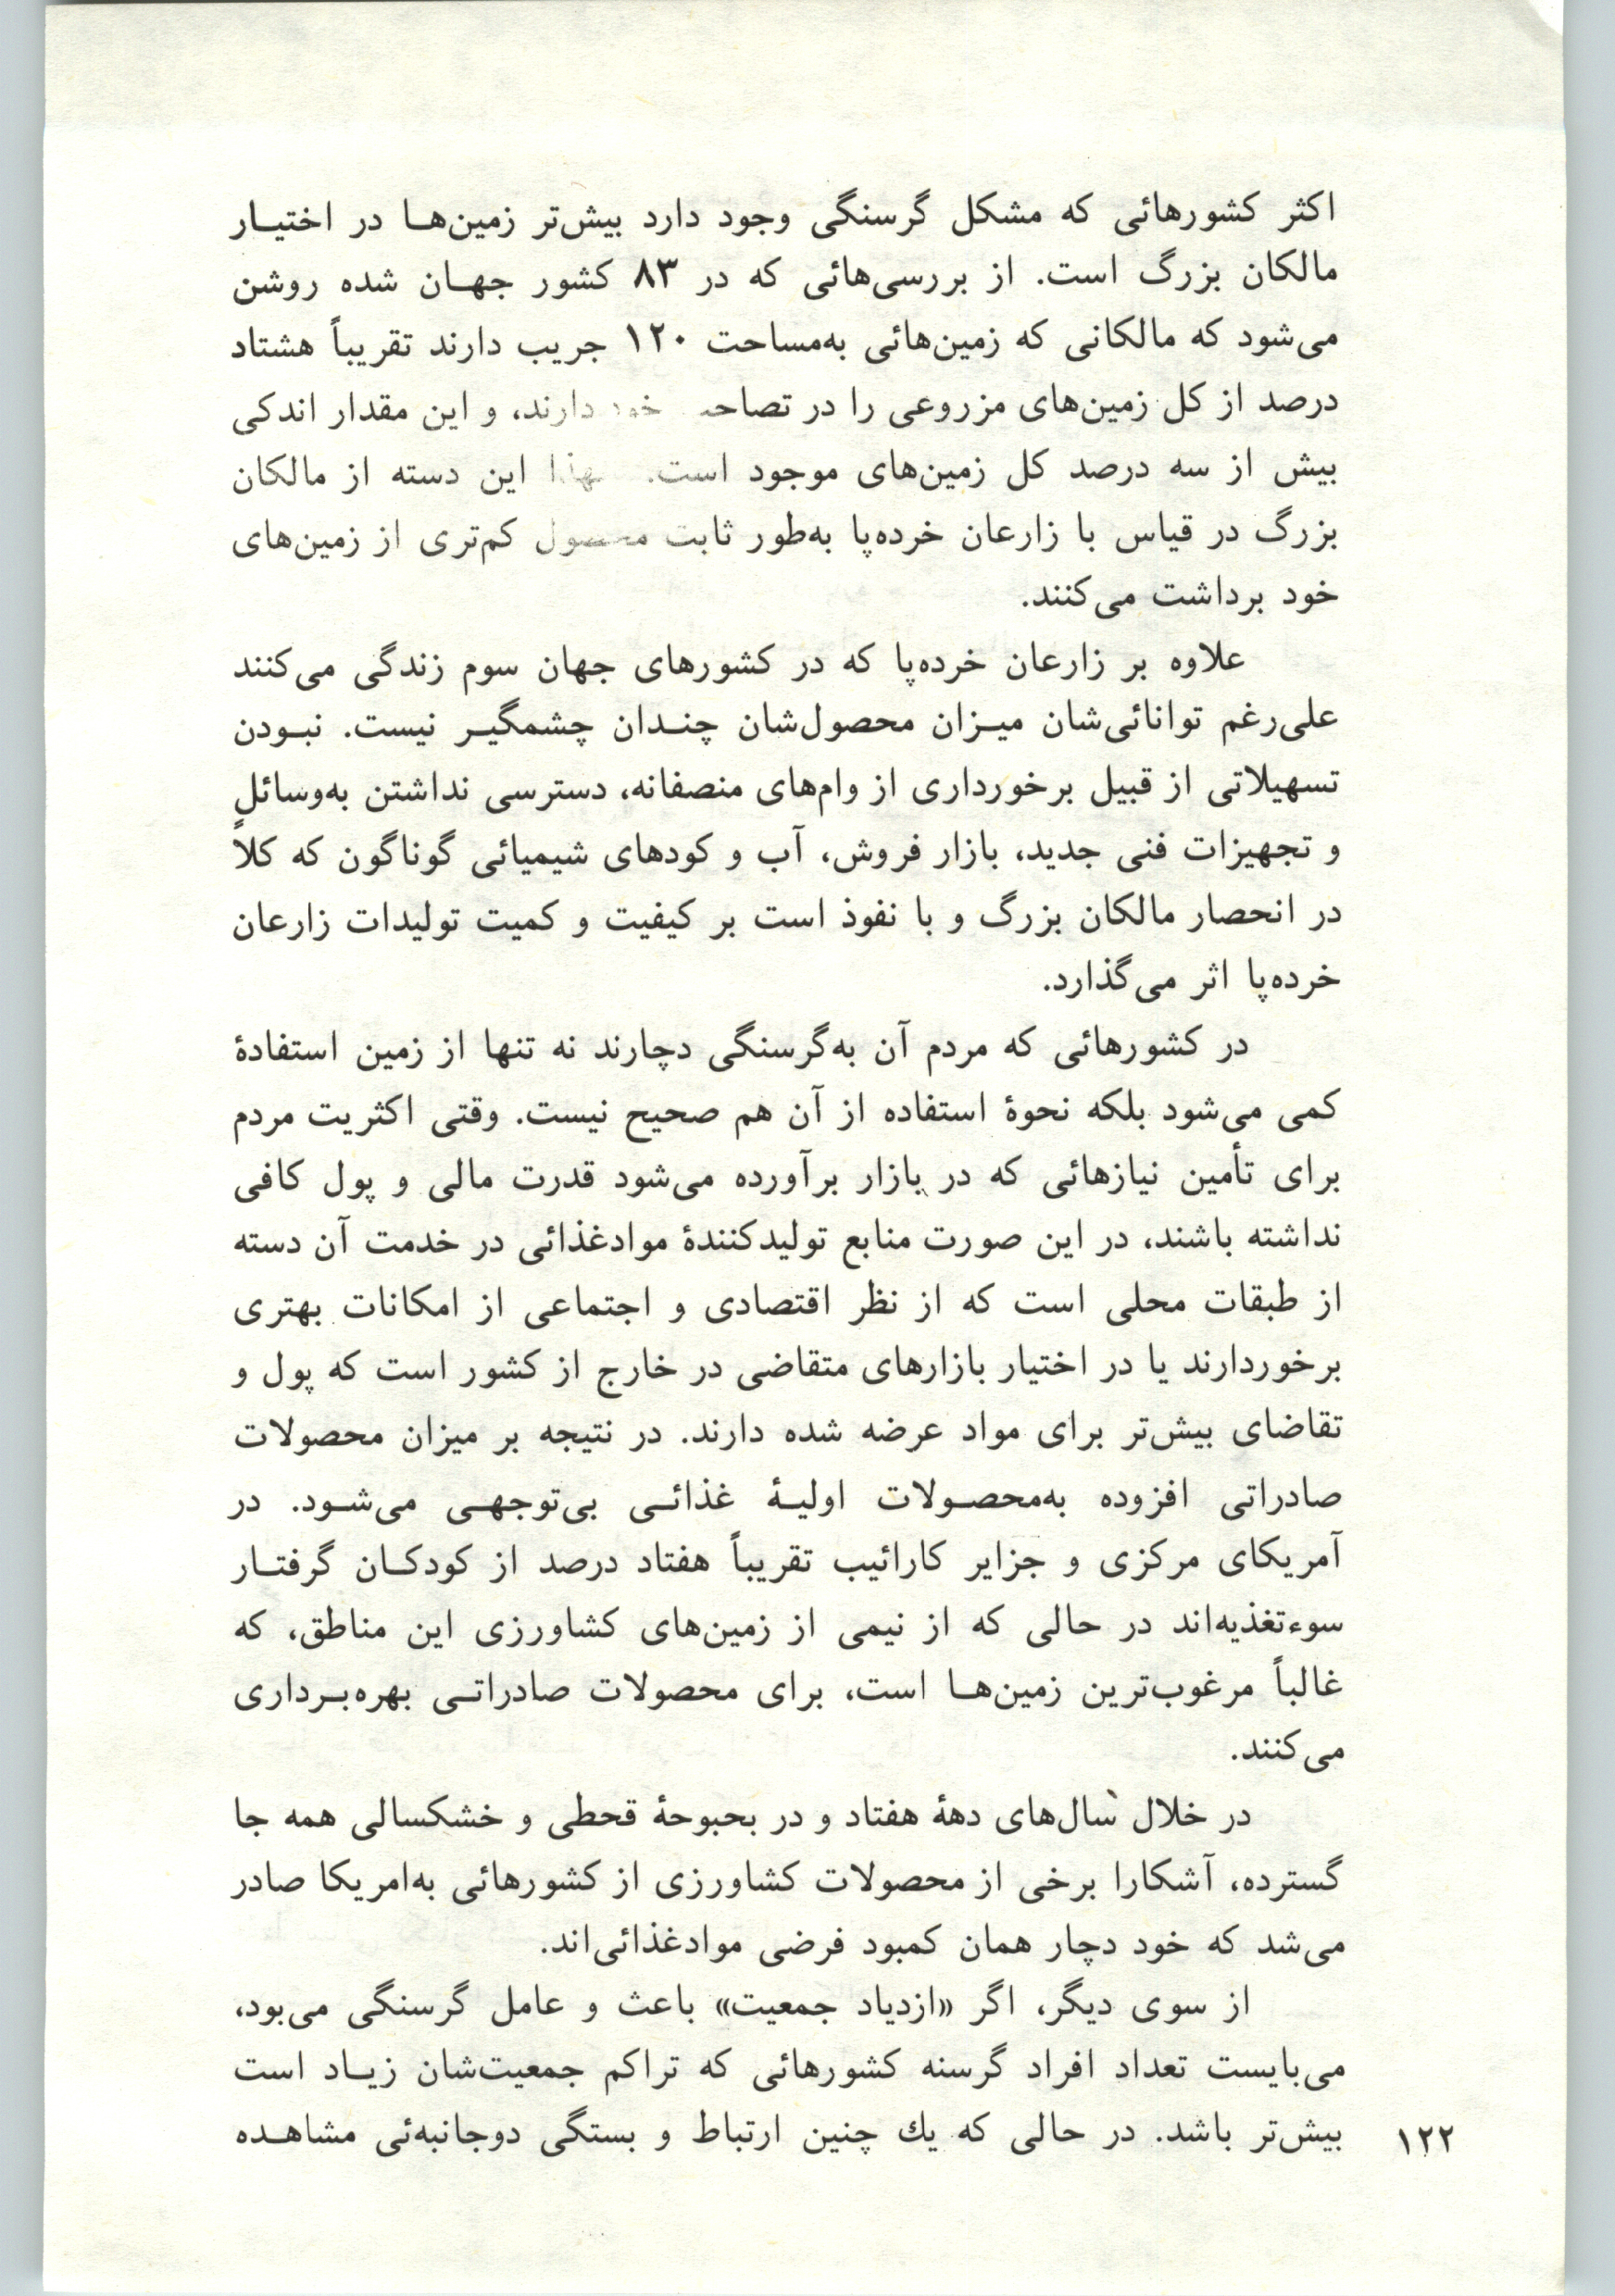 اکثر کشورهائی که مشکل گرسنگی وجود دارد بیش‌تر زمین‌هـا در اختیـار
مالکان بزرگ است. از بررسی‌هائی که در ۸۳ کشور جهـان شده روشن
می‌شود که مالکانی که زمین‌هائی به‌مساحت ۱۲۰ جریب دارند تقریباً هشتاد
درصد از کل زمین‌های مزروعی را در خود دارند، و این مقدار اندکی
بیش از سه درصد کل زمین‌های موجود است. این دسته از مالکان
بزرگ در قیاس با زارعان خرده‌پا به‌طور ثابت محصول کم‌تری از زمین‌های
خود برداشت می‌کنند.
علاوه بر زارعان خرده‌پا که در کشورهای جهان سوم زندگی می‌کنند
علی‌رغم توانائی‌شان میـزان محصول‌شان چنـدان چشمگیـر نیست. نبـودن
تسهیلاتی از قبیل برخورداری از وام‌های منصفانه، دسترسی نداشتن به‌وسائل
و تجهیزات فنی جدید، بازار فروش، آب و کودهای شیمیائی گوناگون که کلاً
در انحصار مالکان بزرگ و با نفوذ است بر کیفیت و کمیت تولیدات زارعان
خرده‌پا اثر می‌گذارد.
در کشورهائی که مردم آن به‌گرسنگی دچارند نه تنها از زمین استفادهٔ
کمی می‌شود بلکه نحوهٔ استفاده از آن هم صحیح نیست. وقتی اکثریت مردم
برای تأمین نیازهائی که در بازار برآورده می‌شود قدرت مالی و پول کافی
نداشته باشند، در این صورت منابع تولیدکنندهٔ موادغذائی در خدمت آن دسته
از طبقات محلی است که از نظر اقتصادی و اجتماعی از امکانات بهتری
برخوردارند یا در اختیار بازارهای متقاضی در خارج از کشور است که پول و
تقاضای بیش‌تر برای مواد عرضه شده دارند. در نتیجه بر میزان محصولات
صادراتی افزوده به‌محصـولات اولیـهٔ غذائـی بی‌توجهـی می‌شـود. در
آمریکای مرکزی و جزایر کارائیب تقریباً هفتاد درصد از کودکـان گرفتـار
سوءتغذیه‌اند در حالی که از نیمی از زمین‌های کشاورزی این مناطق، که
غالباً مرغوب‌ترین زمین‌هـا است، برای محصولات صادراتـی بهره‌بـرداری
می‌کنند.
در خلال سال‌های دههٔ هفتاد و در بحبوحهٔ قحطی و خشکسالی همه جا
گسترده، آشکارا برخی از محصولات کشاورزی از کشورهائی به‌امریکا صادر
می‌شد که خود دچار همان کمبود فرضی موادغذائی‌اند.
از سوی دیگر، اگر «ازدیاد جمعیت» باعث و عامل گرسنگی می‌بود،
می‌بایست تعداد افراد گرسنه کشورهائی که تراکم جمعیت‌شان زیـاد است
بیش‌تر باشد. در حالی که یك چنین ارتباط و بستگی دوجانبه‌ئی مشاهـده
۱۲۲